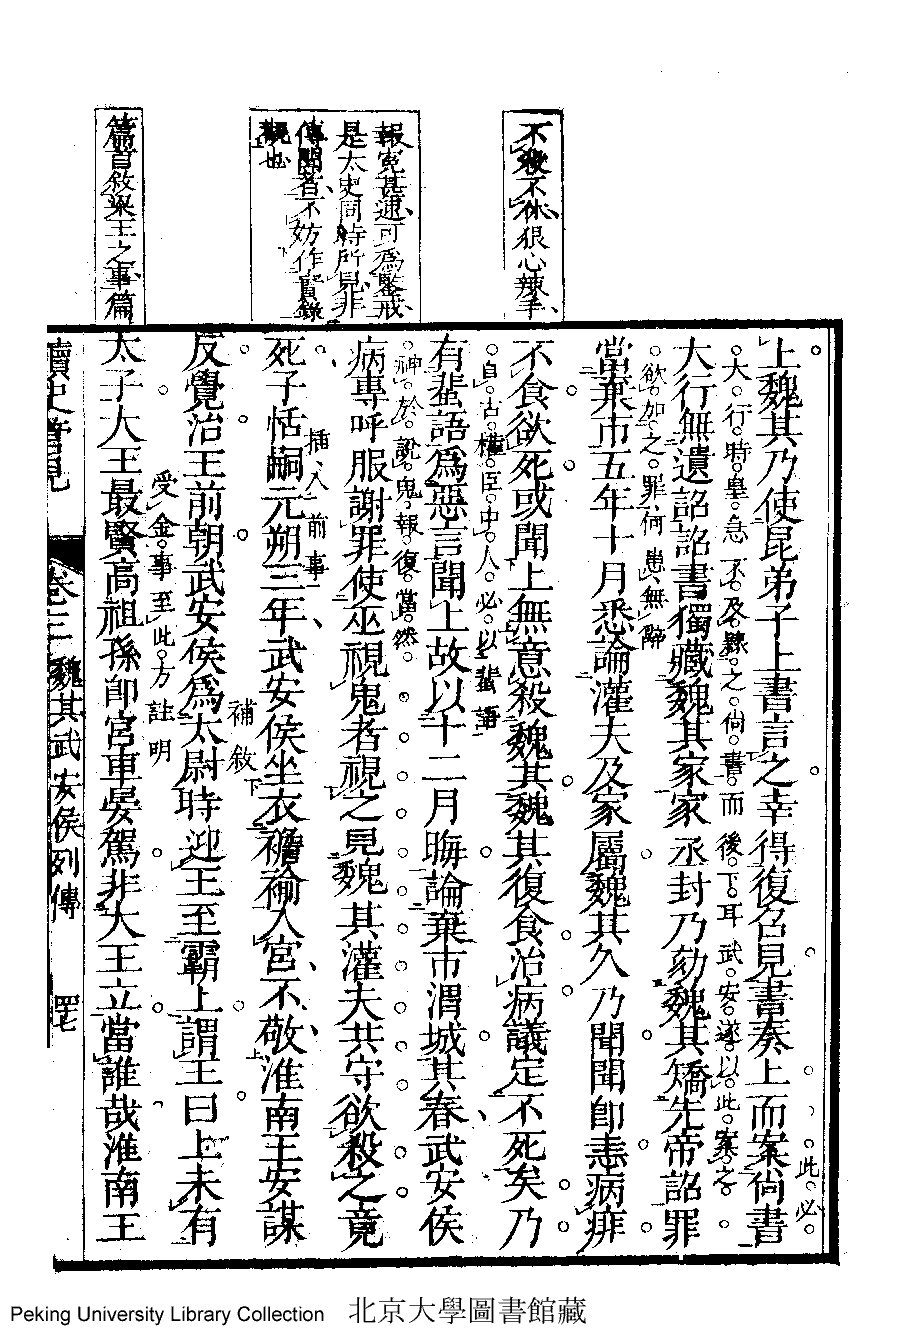 不殺不休狠心辣手
報冤甚速可爲鑒戒
是太史同時所見非
傳聞者不妨作實錄
觀也
篇首敘梁王之事篇
上魏其乃使昆弟子上書言之幸得復召見書奏上而案尚書
此必
大行時皇急不及隸之尚書而後下耳武安遂以此案之
大行無遺詔詔書獨藏魏其家家丞封乃劾魏其矯先帝詔罪
欲加之罪何患無辭
當棄市五年十月悉論灌夫及家屬魏其久乃聞聞卽恚病痱
不食欲死或聞上無意殺魏其魏其復食治病議定不死矣乃
自古權臣中人必以蜚語
有蜚語爲惡言聞上故以十二月晦論棄市渭城其春武安侯
神於說鬼報復當然
病專呼服謝罪使巫視鬼者視之見魏其灌夫共守欲殺之竟
死子恬嗣元朔三年武安侯坐衣襜褕入宮不敬淮南王安謀
插入前事
補敘
反覺治王前朝武安侯爲太尉時迎王至霸上謂王曰上未有
受金事至此方註明
太子大王最賢高祖孫卽宮車晏駕非大王立當誰哉淮南王
讀史管見 卷三 魏其武安侯列傳 四七
Peking University Library Collection 北京大學圖書館藏